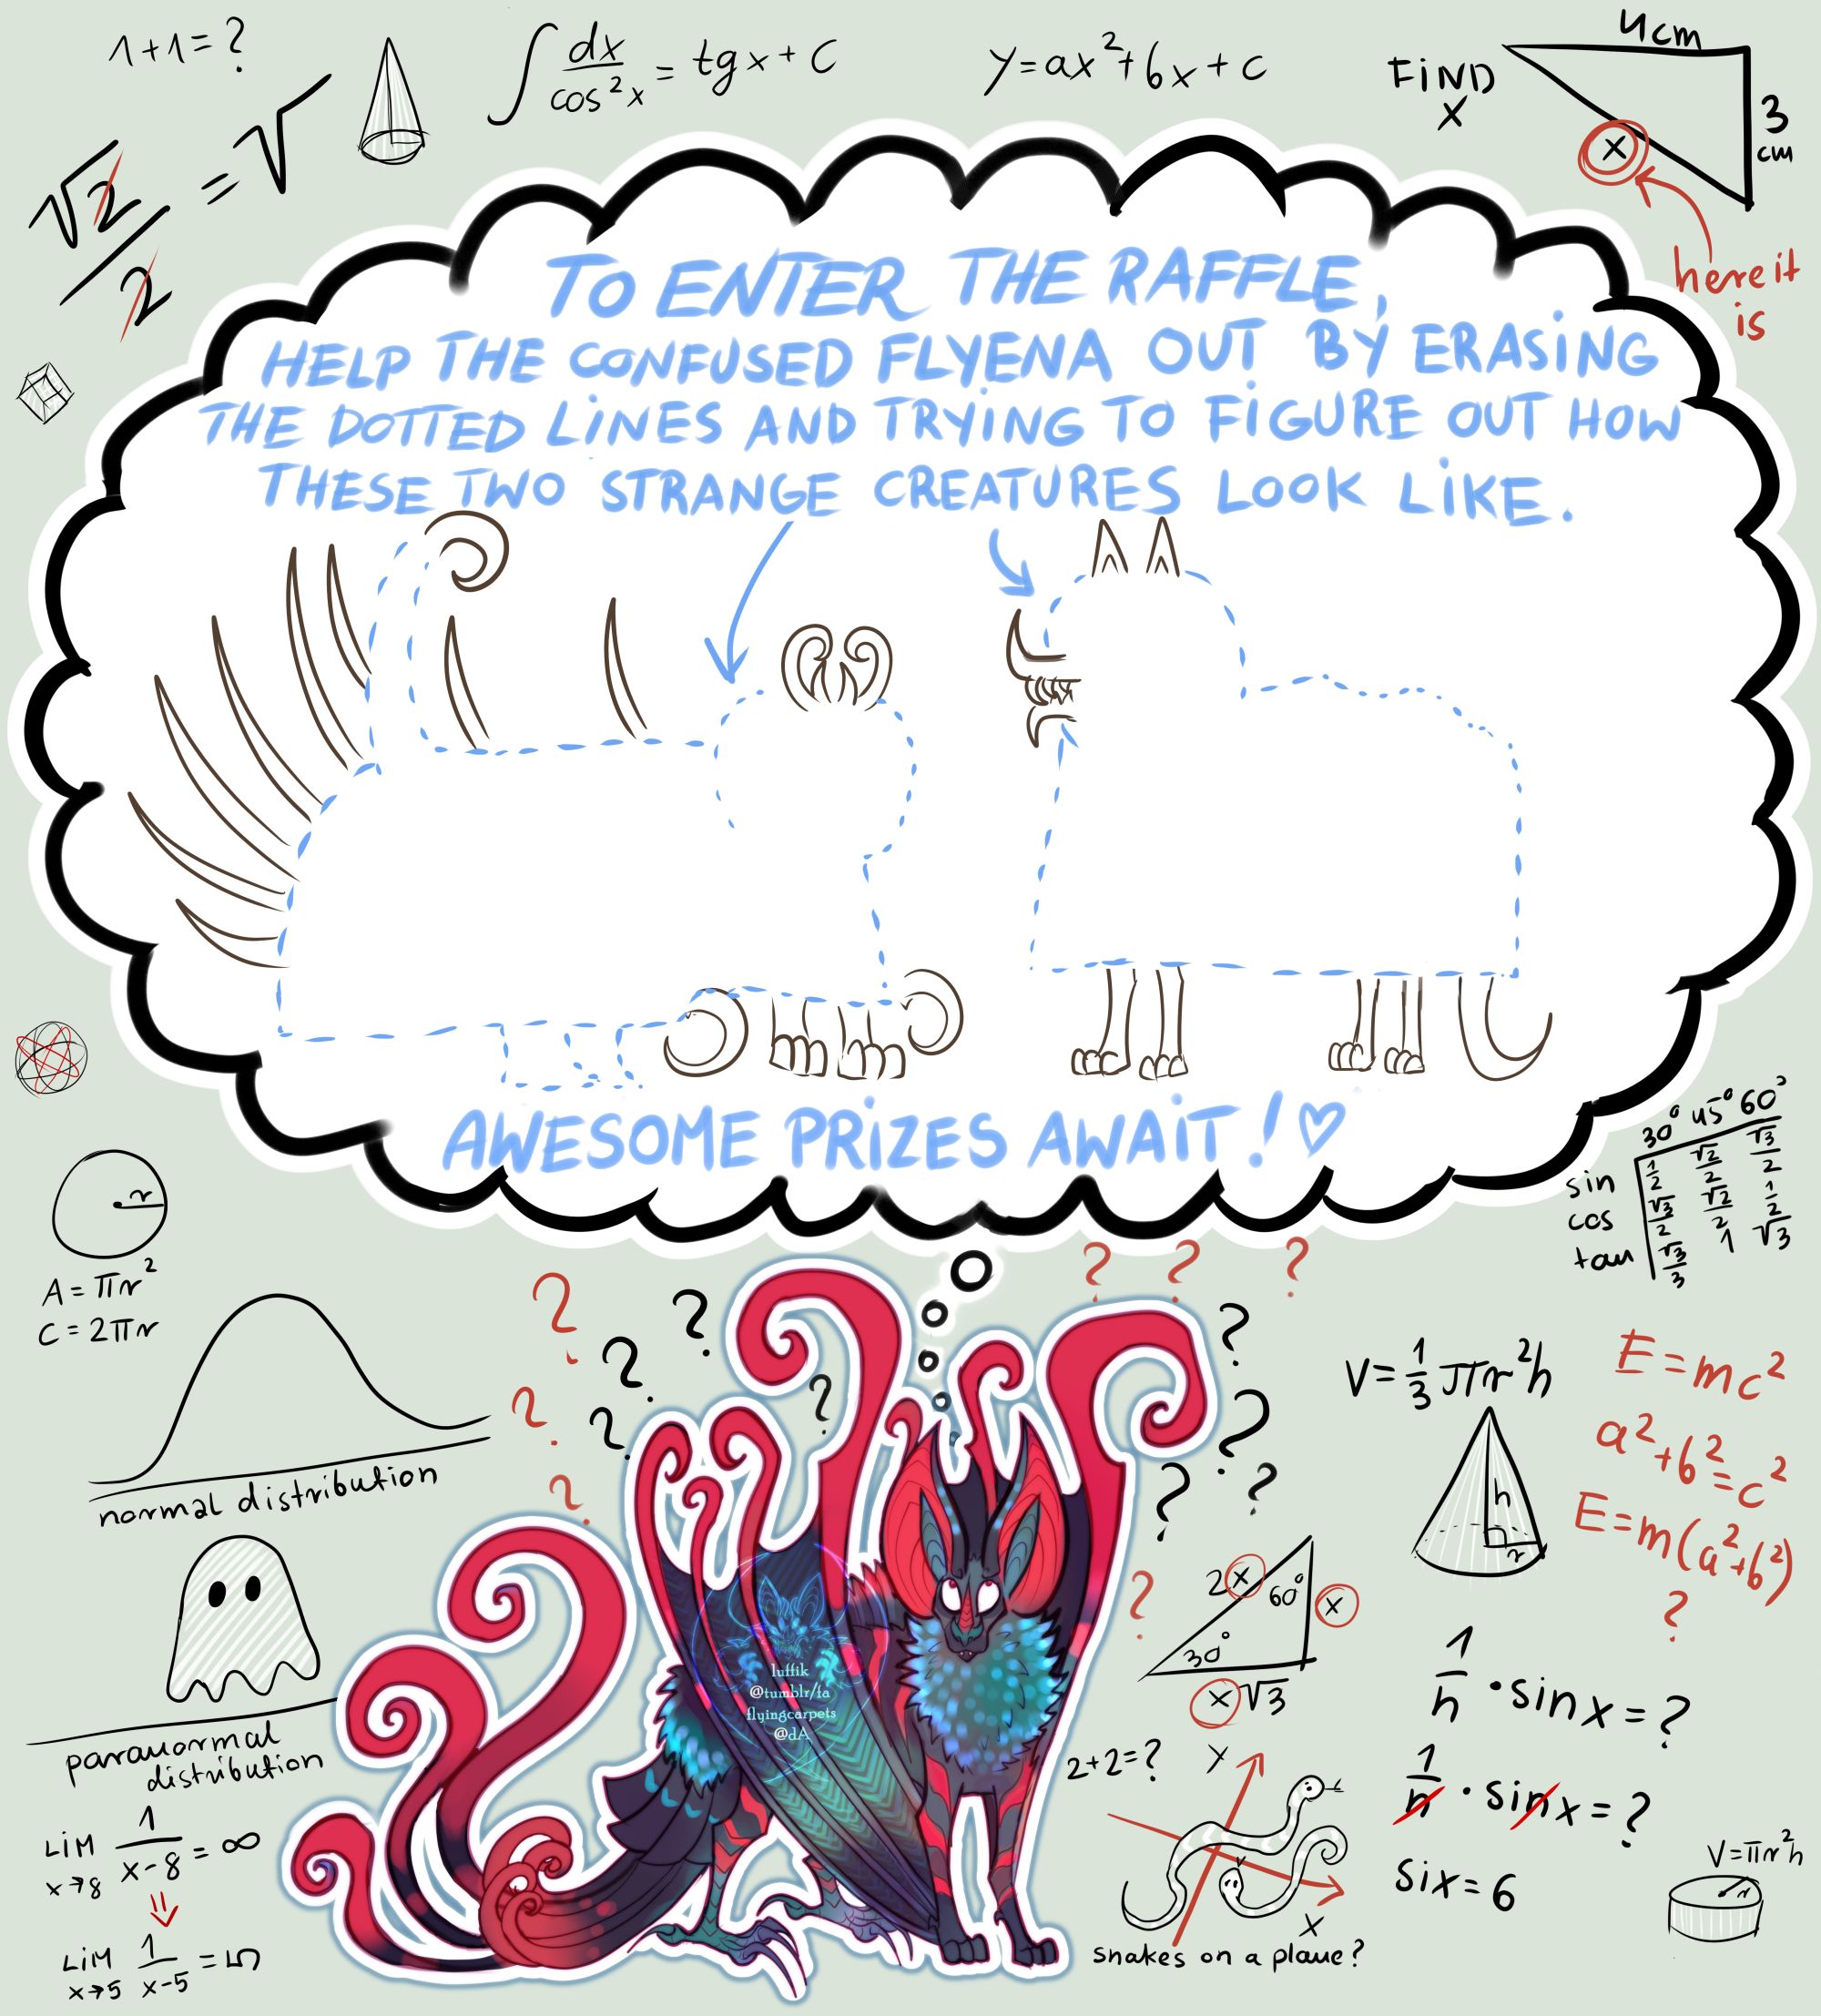 1+1=?
∫ dx/cos²x = tgx + C
y=ax²+bx+c
FIND
X
4cm
3
cm
x
here it
is
√2/2 = √
TO ENTER THE RAFFLE,
HELP THE CONFUSED FLYENA OUT BY ERASING
THE DOTTED LINES AND TRYING TO FIGURE OUT HOW
THESE TWO STRANGE CREATURES LOOK LIKE.
AWESOME PRIZES AWAIT! ♡
30° 45° 60°
sin 1/2 √2/2 √3/2
cos √3/2 √2/2 1/2
tan √3/3 1 √3
r
A=πr²
C=2πr
normal distribution
paranormal
distribution
LIM x→8 1/(x-8) = ∞
⇓
LIM x→5 1/(x-5) = 5
? ? ? ? ? ? ? ? ? ? ? ? ? ? ? ? ?
luffik
@tumblr/fa
flyingcarpets
@dA
V=1/3 πr²h
h
r
E=mc²
a²+b²=c²
E=m(a²+b²)
?
2x
60°
x
30°
x√3
1/n · sin x = ?
1/n · sin x = ?
six=6
2+2=?
Y
X
snakes on a plane?
V=πr²h
r